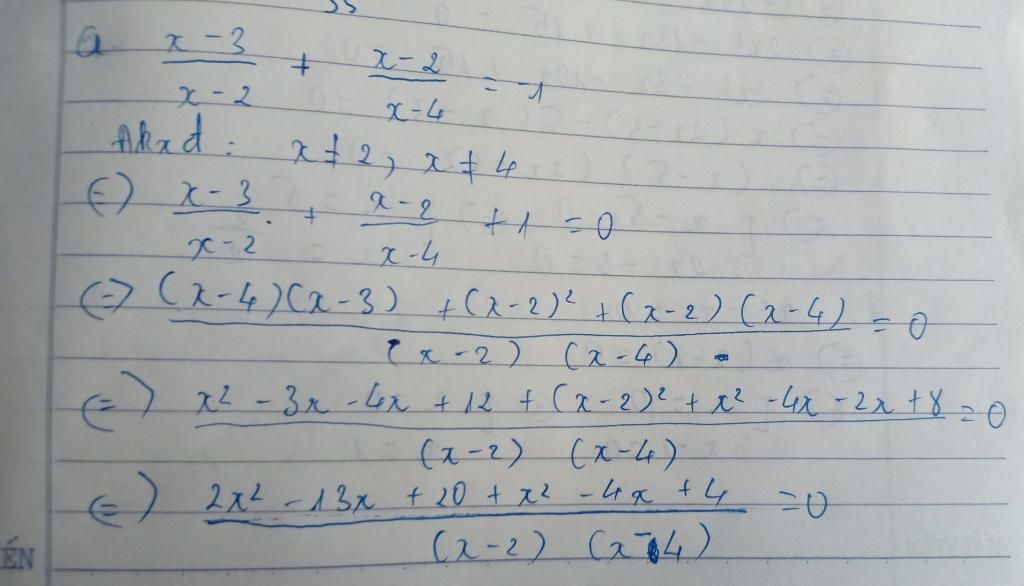 a. (x-3)/(x-2) + (x-2)/(x-4) = -1
Đkxđ : x ≠ 2, x ≠ 4
(=) (x-3)/(x-2) + (x-2)/(x-4) + 1 = 0
(=) ((x-4)(x-3) + (x-2)² + (x-2)(x-4))/((x-2)(x-4)) = 0
(=) (x² - 3x - 4x + 12 + (x-2)² + x² - 4x - 2x + 8)/((x-2)(x-4)) = 0
(=) (2x² - 13x + 20 + x² - 4x + 4)/((x-2)(x-4)) = 0
ÉN